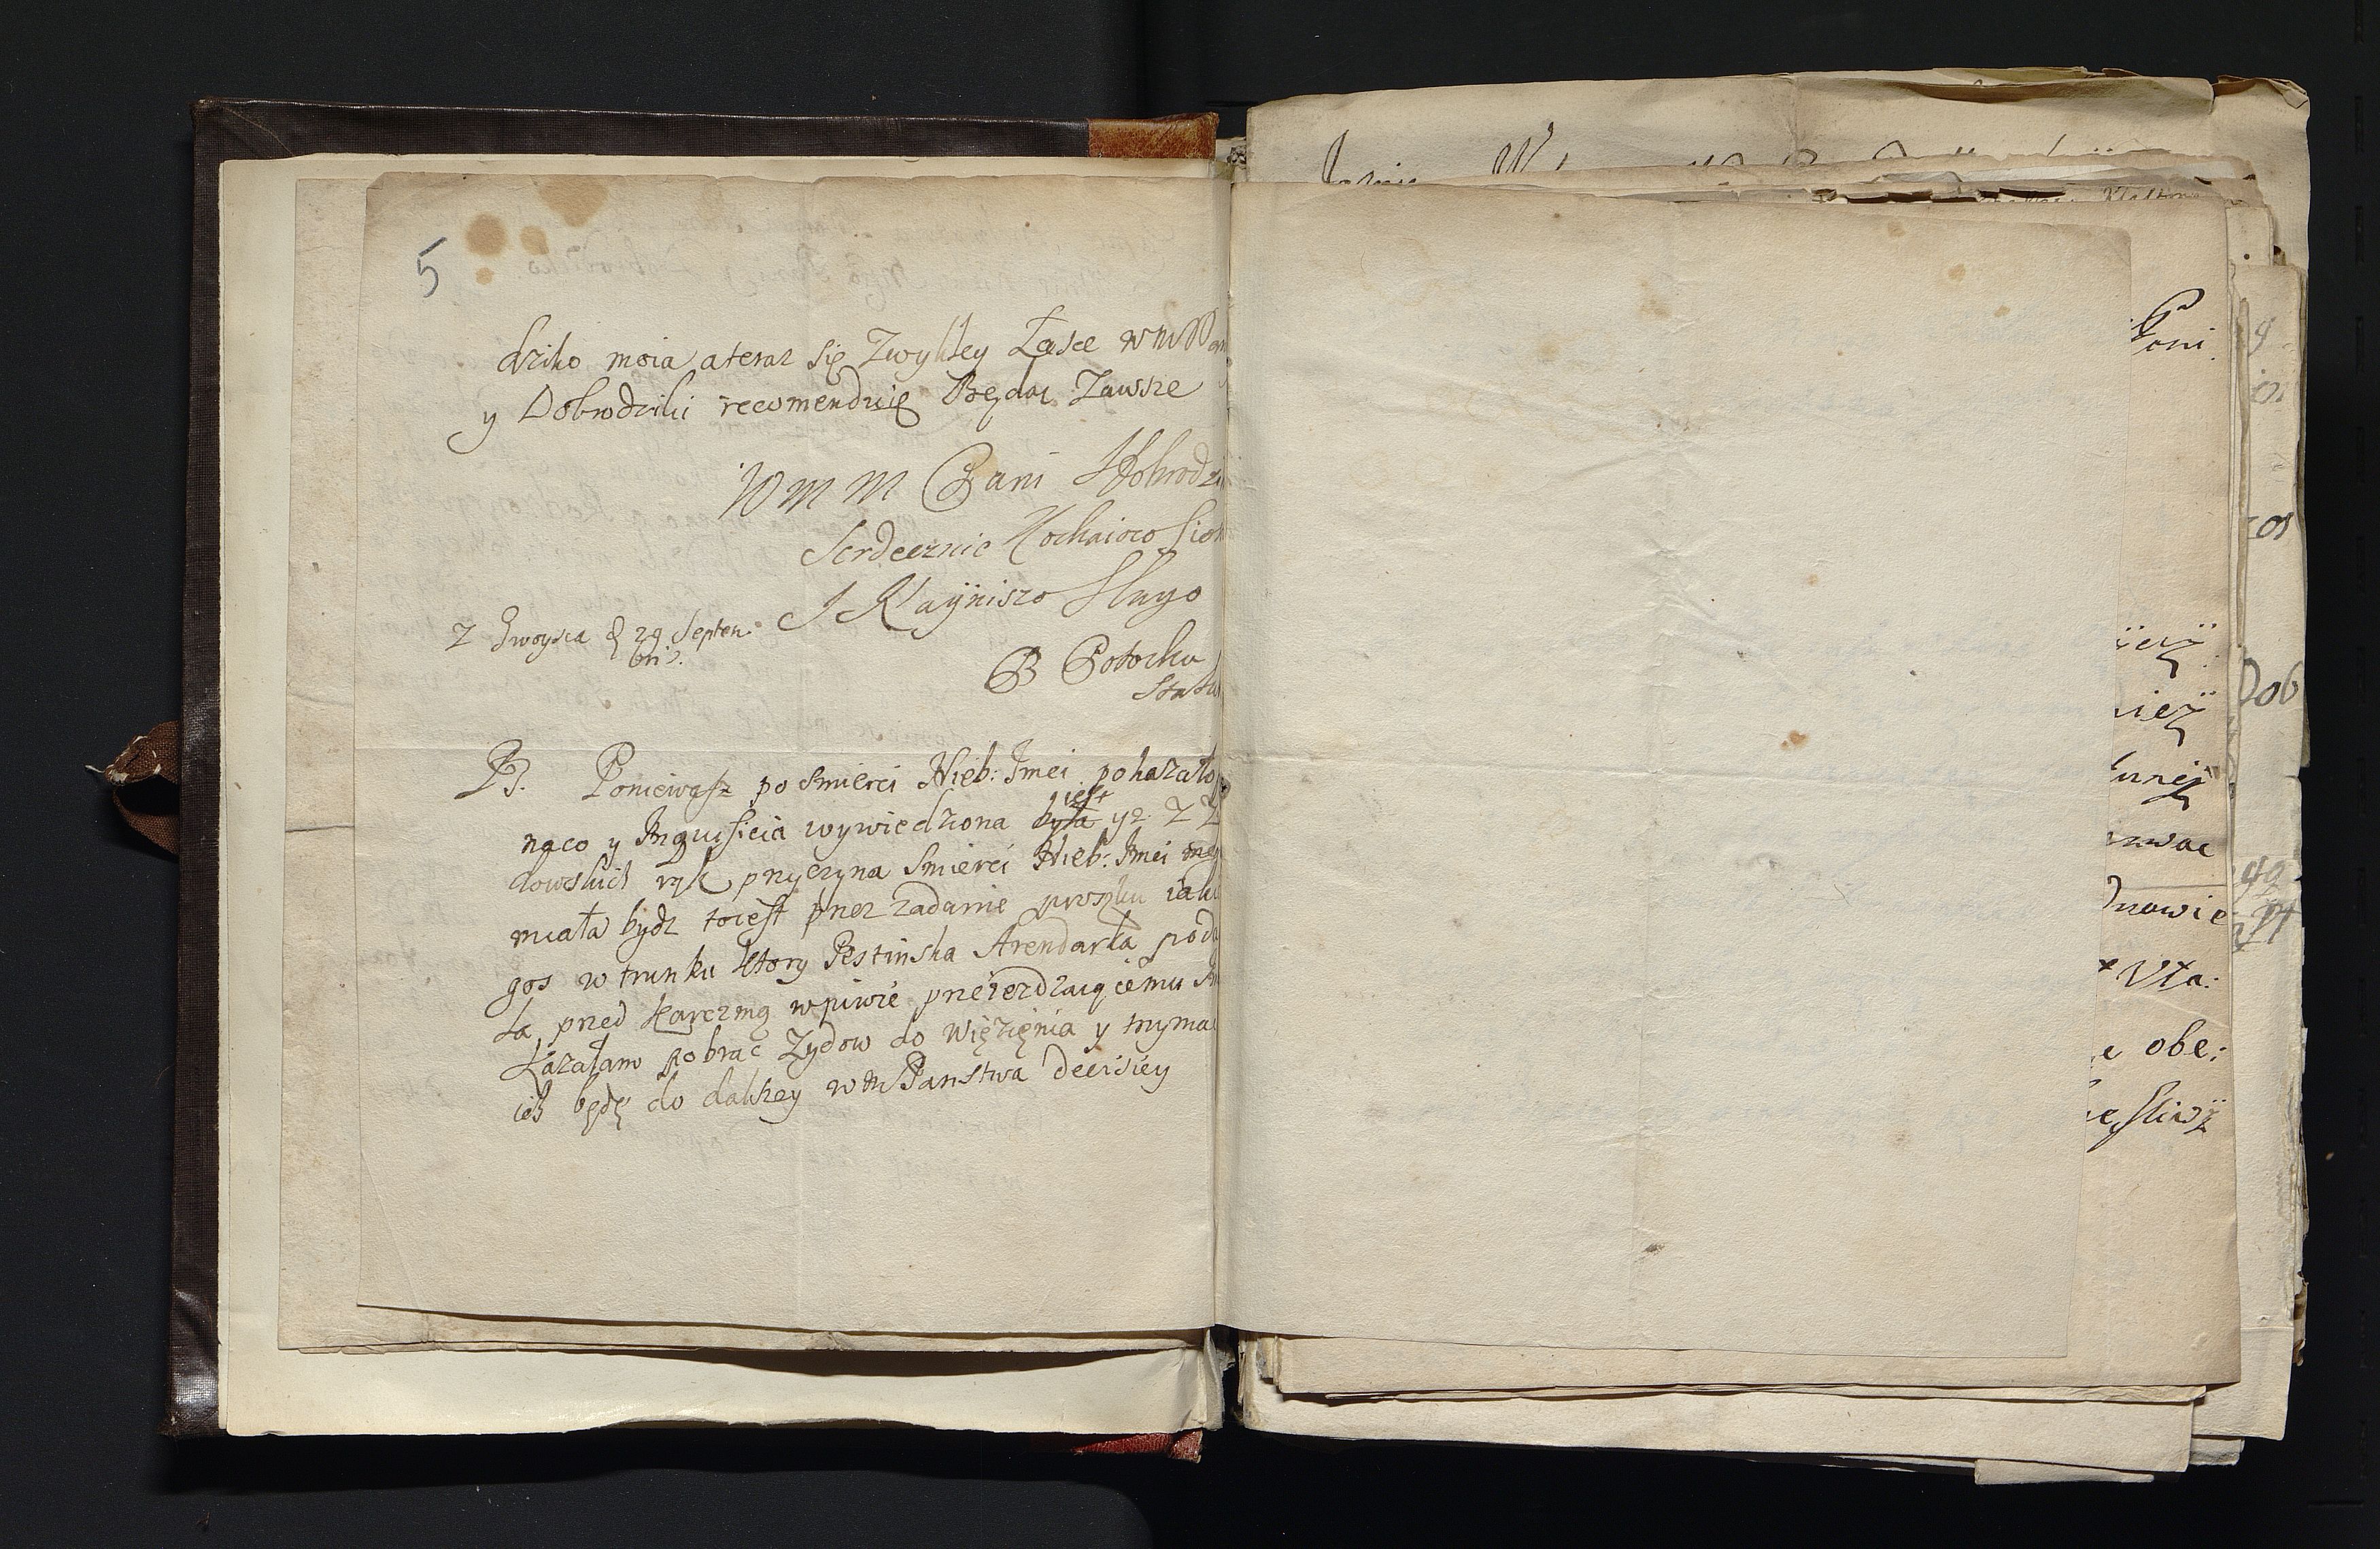 5
dziko moia ateraz się Zwykłey Łasce WM Pan
y Dobrodziki recomenduię Będąc Zawsze
WMM Pani Dobrodzi
Serdecznie Kochaioco Sios
I Nayniszo Slugo
Z Gwoysca d 29 Septem.
bris.
B Potocka
PS. Poniewasz po Smierci Nieb: Jmci pokazało
naco y Inquisicia wywiedziona była iest yz Z Z
dowskich rąk przyczyna Smierci Nieb: Jmci
miała bydz toiest przez zadanie proszku iakie
gos w trunku ktory Pestinska Arendarka poda
ła przed karczmą wpiwie przeiezdzaiącemu
kazałam pobrac Zydow do więzięnia y trzymac
ich będę do dalszey WM Panstwa decisiey
Pani
Dob
nawie
Vła:
obe: